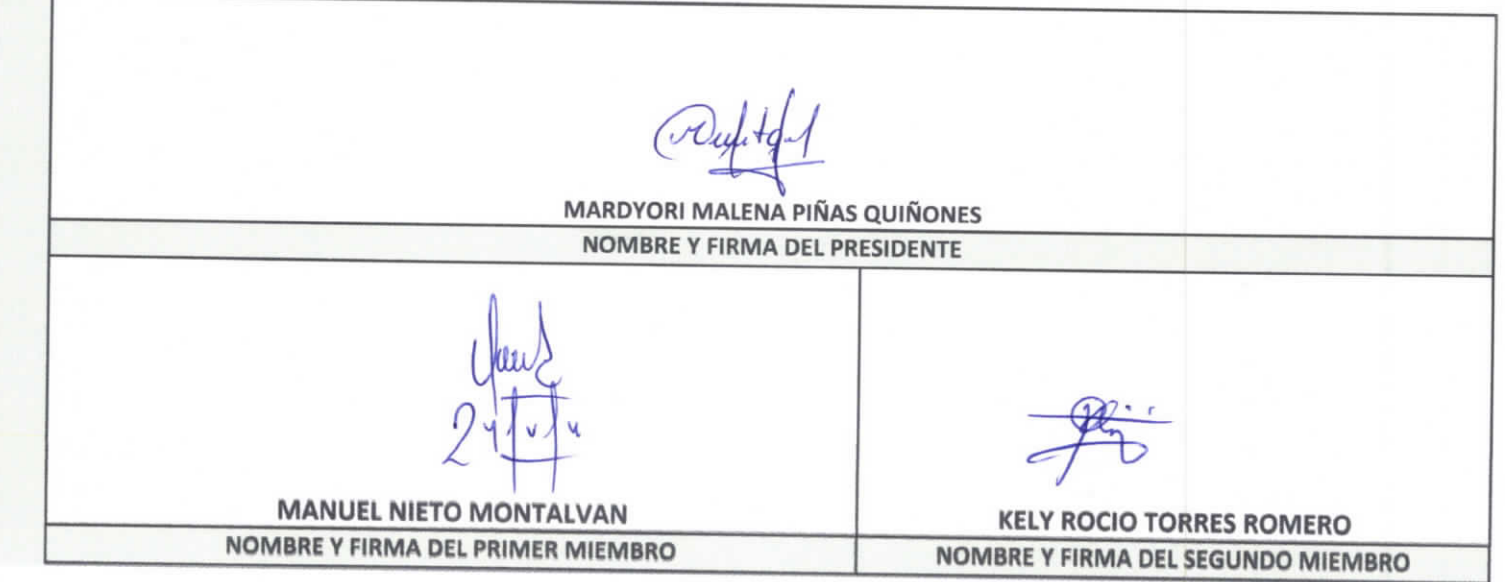 MARDYORI MALENA PIÑAS QUIÑONES
NOMBRE Y FIRMA DEL PRESIDENTE
MANUEL NIETO MONTALVAN
NOMBRE Y FIRMA DEL PRIMER MIEMBRO
KELY ROCIO TORRES ROMERO
NOMBRE Y FIRMA DEL SEGUNDO MIEMBRO